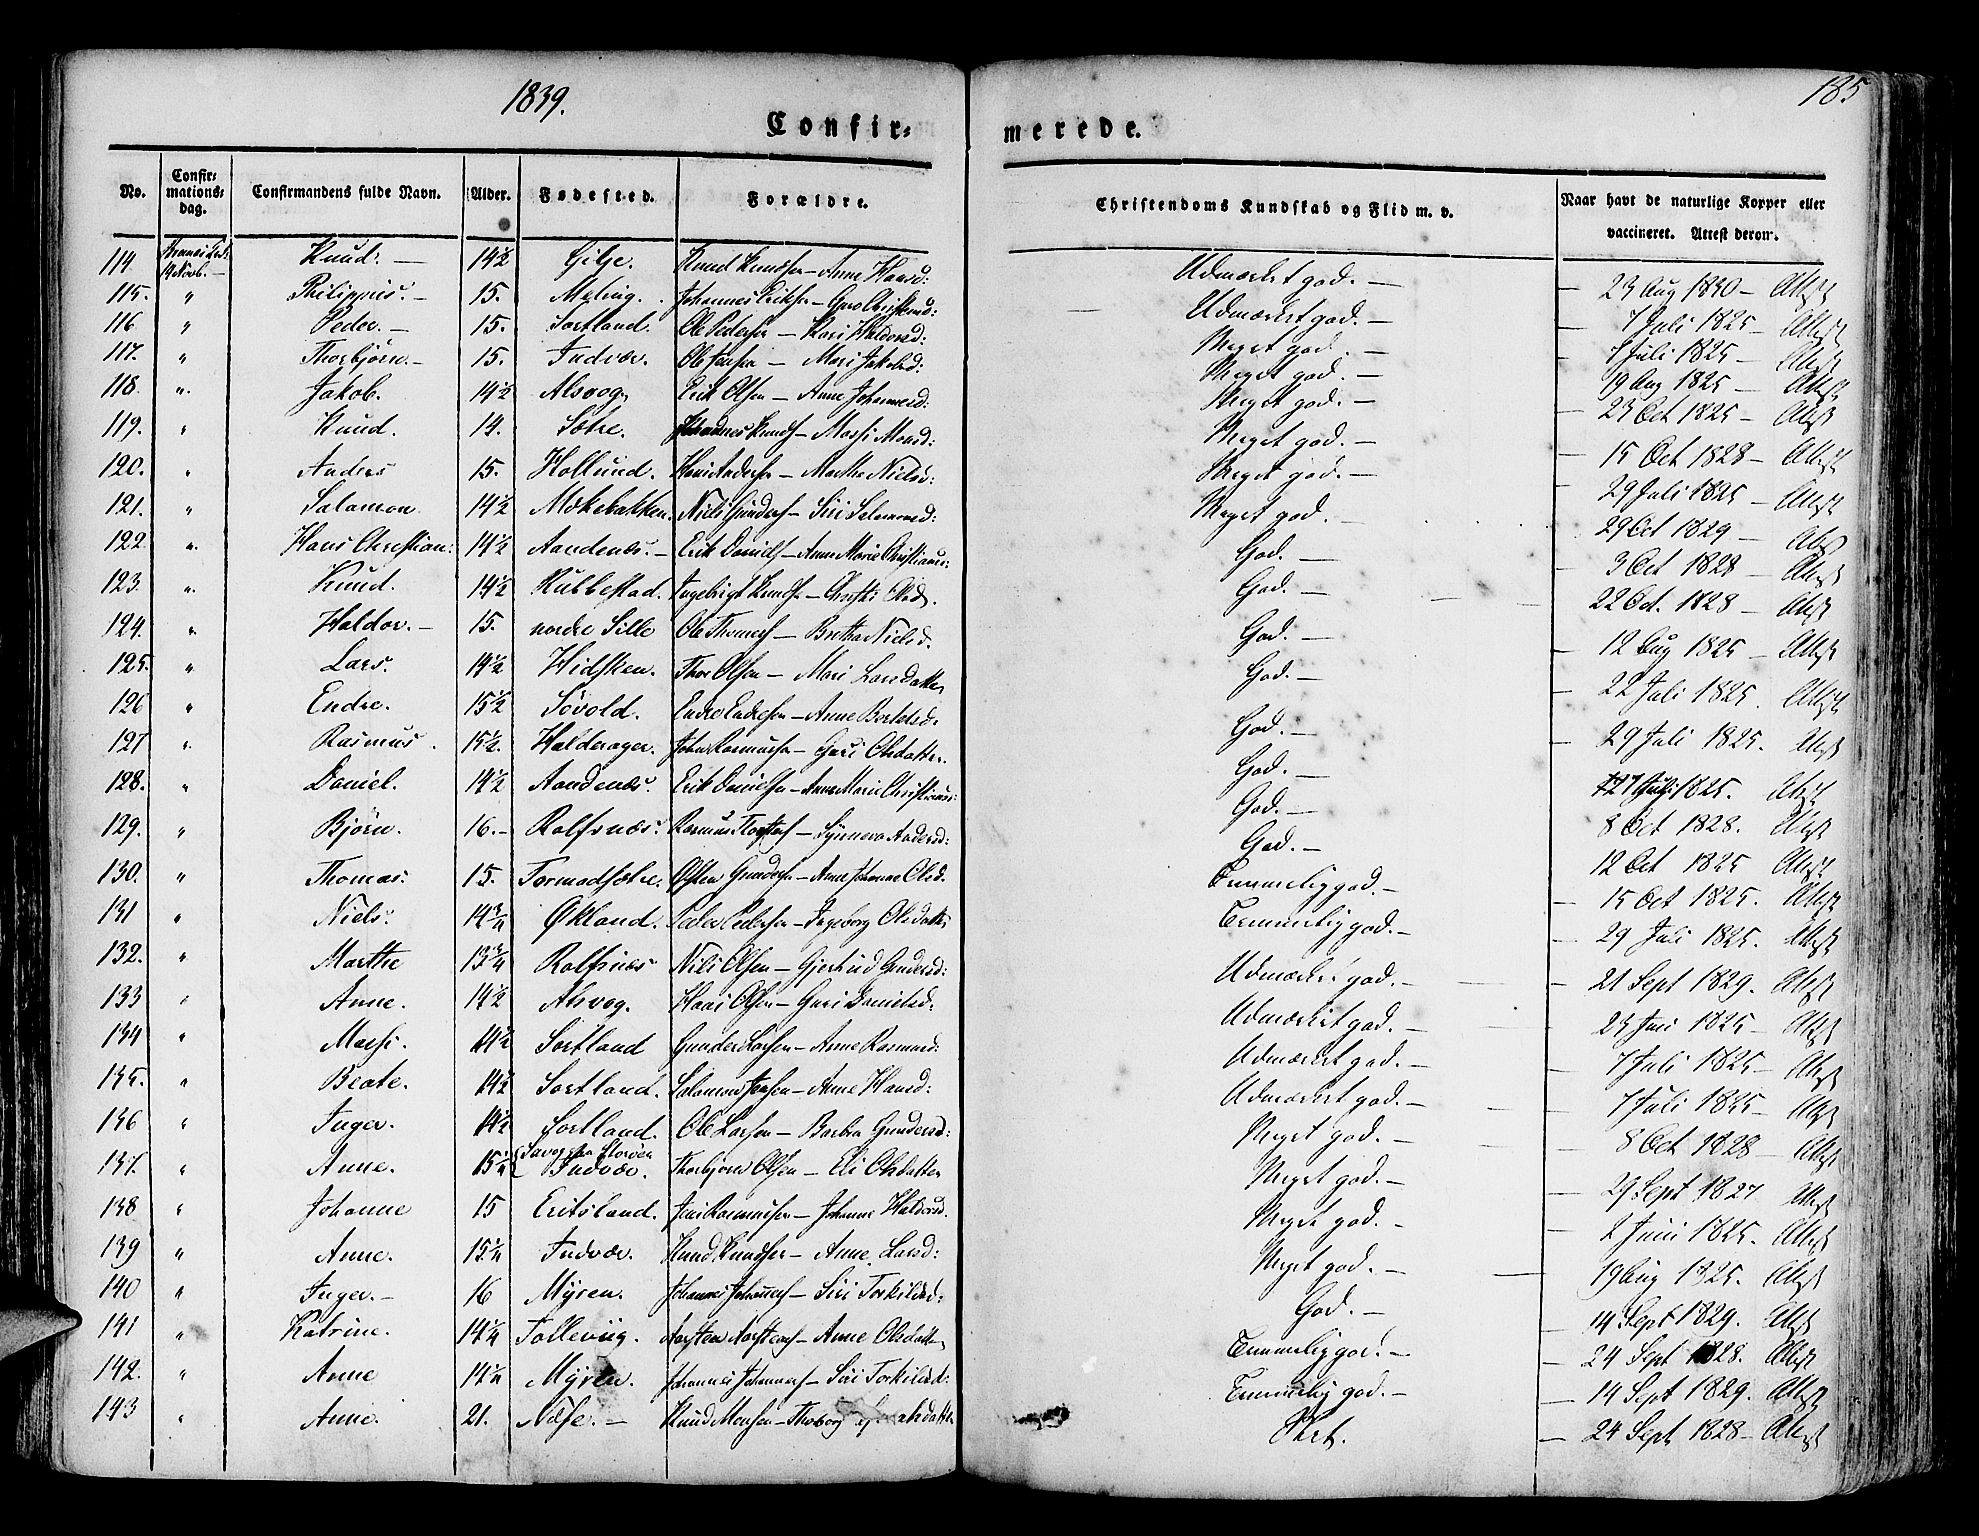 1839.
185
Confir=
merede.
No. Confir=mations=dag. Confirmandens fulde Navn. Alder. Fødested. Forældre. Christendoms Kundskab og Flid m. v. Naar havt de naturlige Kopper eller vaccineret. Attest derom.
114 Knud. — 14½ Gilje. Knud Knudsen — Anne Hansd: Udmærket god. — 23 Aug 1830 — Attest
115. " Philippus. — 15. Meling. Johannes Eriksen — Udmærket god. — 7 Juli 1825 — Attest
116. " Peder. — 15. Sortland. Ole Pedersen — Kari Haldorsd: Meget god. — 7 Juli 1825 — Attest
117. " Thorbjørn. — 15. Indvær. Ole Jensen — Mari Jakobsd: Meget god. — 19 Aug 1825 — Attest
118. " Jakob. 14½ Alsvog. Erik Olsen — Anne Johannesd: Meget god. — 23 Oct 1825 — Attest
119. " Knud. 14. Sætre. Johannes Knuds — Massi Monsd: Meget god. — 15 Oct 1828 — Attest
120. " Anders 15. Hollund. Hans Andersen — Marthe Nielsd: Meget god. — 29 Juli 1825 — Attest
121. " Salamon. 14½ Mokebakken. Niels Gunders — Siri Salamonsd: Meget god. — 29 Oct 1829 — Attest
122. " Hans Christian. 14½ Aandenæs. — Erik Daniels — Anne Marie Christians: God. — 3 Oct 1828 — Attest
123. " Knud. 14½ Rubbestad. Ingebrigt Knudsen — Christi Olsd. God. — 22 Oct. 1828 — Attest
124. " Haldor. — 15. nordre Sille Ole Thomes — Berthe Nielsd. God. — 12 Aug 1825 — Attest
125. " Lars. 14½ Hidsken. Thor Olsen — Mari Larsdatter God. — 22 Juli 1825. Attest
126 " Endre. 15½ Søvold. Endre Endresen — Anne Bertelsd. God. — 29 Juli 1825. Attest
127 " Rasmus. 15½. Halderager. John Rasmussen — Guri Olsdatter. God. — 1825. Attest
128. " Daniel. 14½ Aandenæs. Erik Danielsen — Anne Marie Christians: God. — 8 Oct 1828. Attest
129. " Bjørn. 16. — Rolfsnæs. Rasmus — Synneva Andersd: God. — 12 Oct 1825 Attest
130. " Thomas. 15. Tormodsætre. Østen Gunders — Anne Johanne Olsd. Temmelig god. — 15 Oct 1825. Attest
131 " Niels. 14¾ Økland. Peder Pedersen — Ingeborg Olsdatter Temmelig god. — 29 Juli 1825. Attest
132. " Marthe 13¾ Rolfsnæs Nils Olsen — Gjertrud Gundersd: Udmærket god. — 21 Sept 1829. Attest
133 " Anne. 14½ Alsvog. Haas Olsen — Guri Danielsd: Udmærket god. — 23 Juni 1825 — Attest
134 " Massi. 14½ Sortland Gunder Larsen — Anne Rasmusd: Udmærket god. — 7 Juli 1825 — Attest
135. " Beate. 14½ Sortland. Salamon Jensen — Anne Hansd: Udmærket god. — 7 Juli 1825 — Attest
136 " Inger. 14½ Sortland. Ole Larsen — Barbra Gundersd: Meget god. — 8 Oct 1828 — Attest
137. " Anne. 15¼ Indvær. Thorbjørn Olsen — Eli Olsdatter Meget god. — 29 Sept 1827 Attest
138 " Johanne 15 Eritsland. Jens Rasmussen — Johanne Haldorsd. Meget god. — 2 Juni 1825. Attest
139 " Anne. 15¼ Indvær. Knud Knudsen — Anne Larsd: Meget god. — 19 Aug 1825. Attest
140 " Inger. — 16 Myren. Johannes Johannes — Siri Torkilsd: God. — 14 Sept 1829. Attest
141 " Katrine. 14¼ Tollevig. Aasten — Anne Olsdatter Temmelig god. — 24 Sept 1828. Attest
142. " Anne 14¼ Myren. Johannes Johannes — Siri Torkilsd: Temmelig god. — 14 Sept 1829. Attest
143 " Anne. 21. Næse. — Knud Monsen — Thorborg Slet. 24 Sept 1828 — Attest